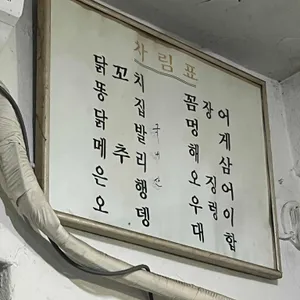 차림표
닭꼬치
똥집
닭발
메추리
은행
오뎅
국내산
꼼장어
멍게
해삼
오징어
우렁이
대합